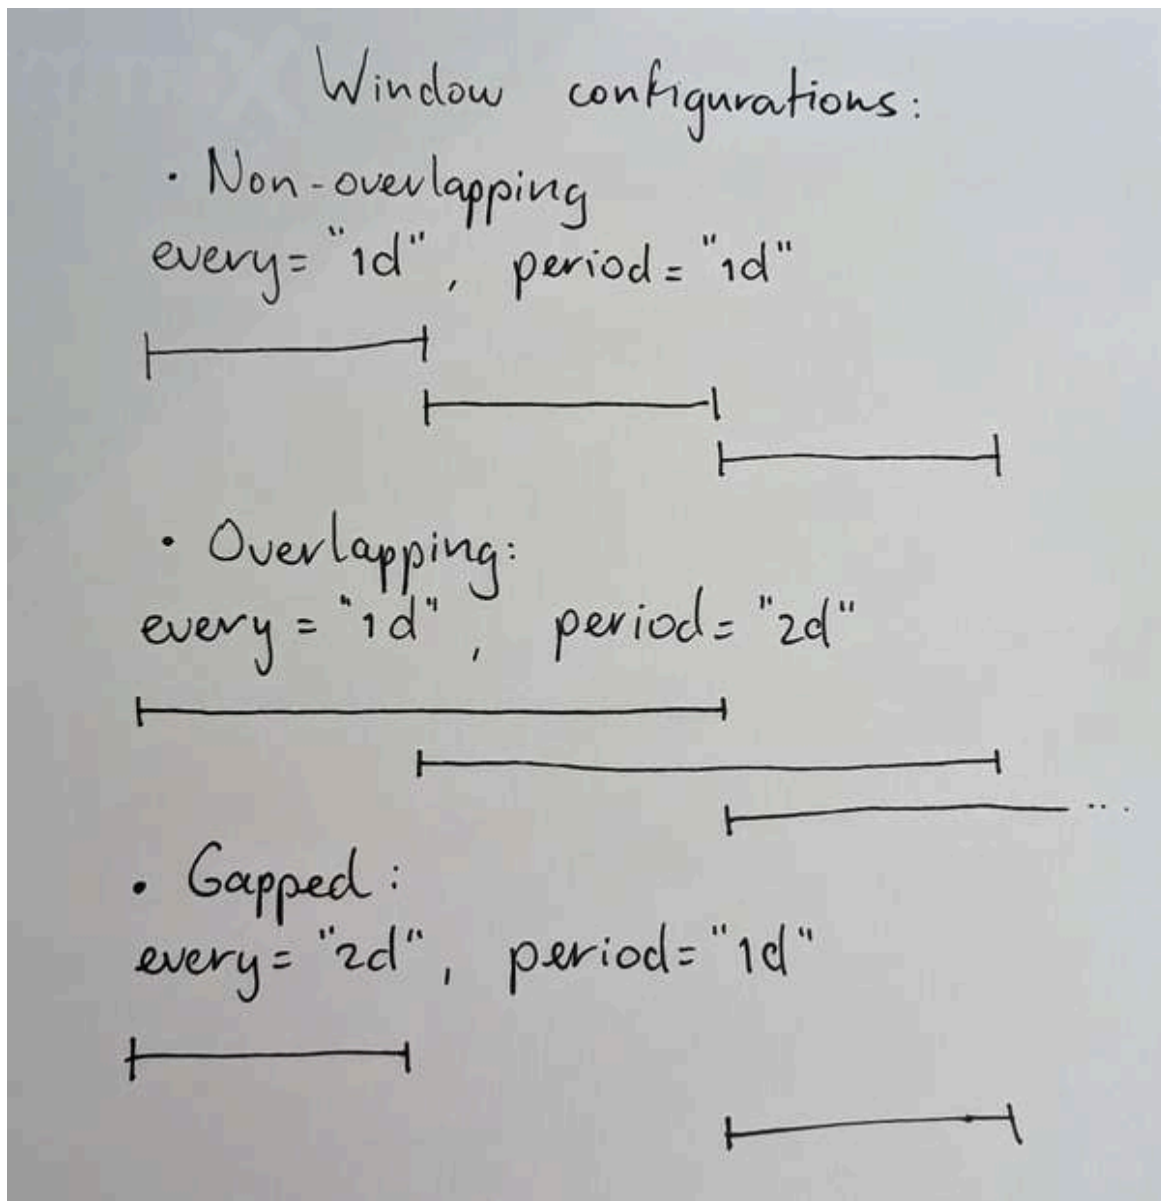 Window configurations:
· Non-overlapping
every="1d", period="1d"
· Overlapping:
every="1d", period="2d"
...
· Gapped:
every="2d", period="1d"